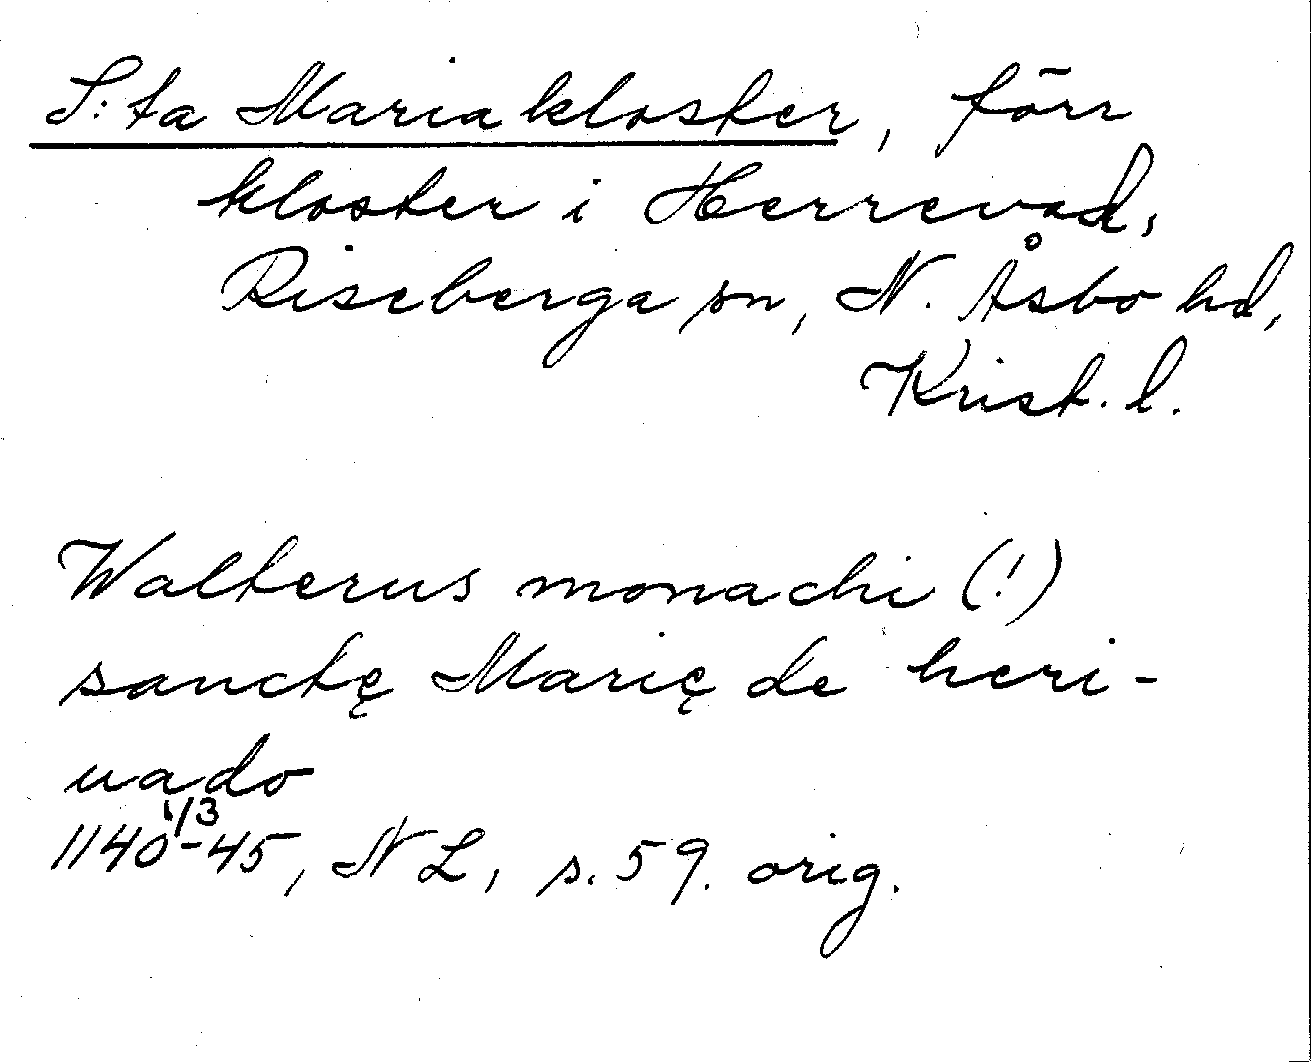 S:ta Mariakloster, förr
kloster i Herrevad,
Riseberga sn, N. Åsbo hd,
Krist. l.
Walterus monachi (!)
sanctę Marię de heri-
uado
1/3
1140-45, NL, s. 59. orig.